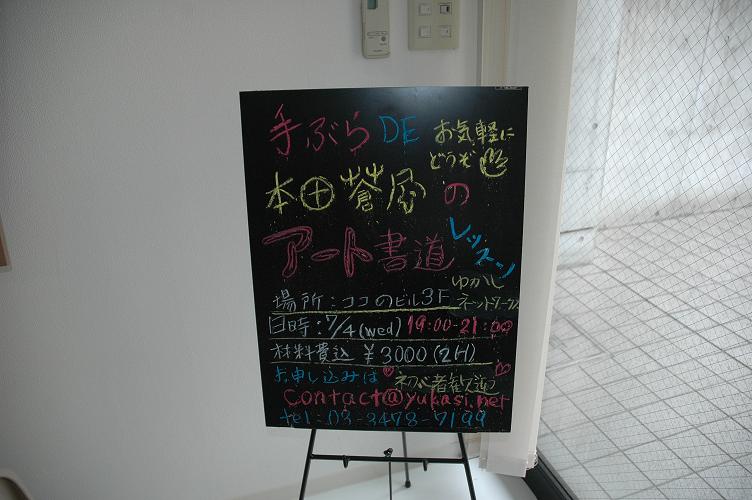 手ぶらDE
お気軽に
どうぞ
本田蒼風の
アート書道
レッスン
場所:ココのビル3F
ゆかし
ネットワークス
日時:7/4(wed) 19:00-21:00
材料費込 ¥3000(2H)
お申し込みは
初心者歓迎
contact@yukasi.net
tel:03-3478-7199